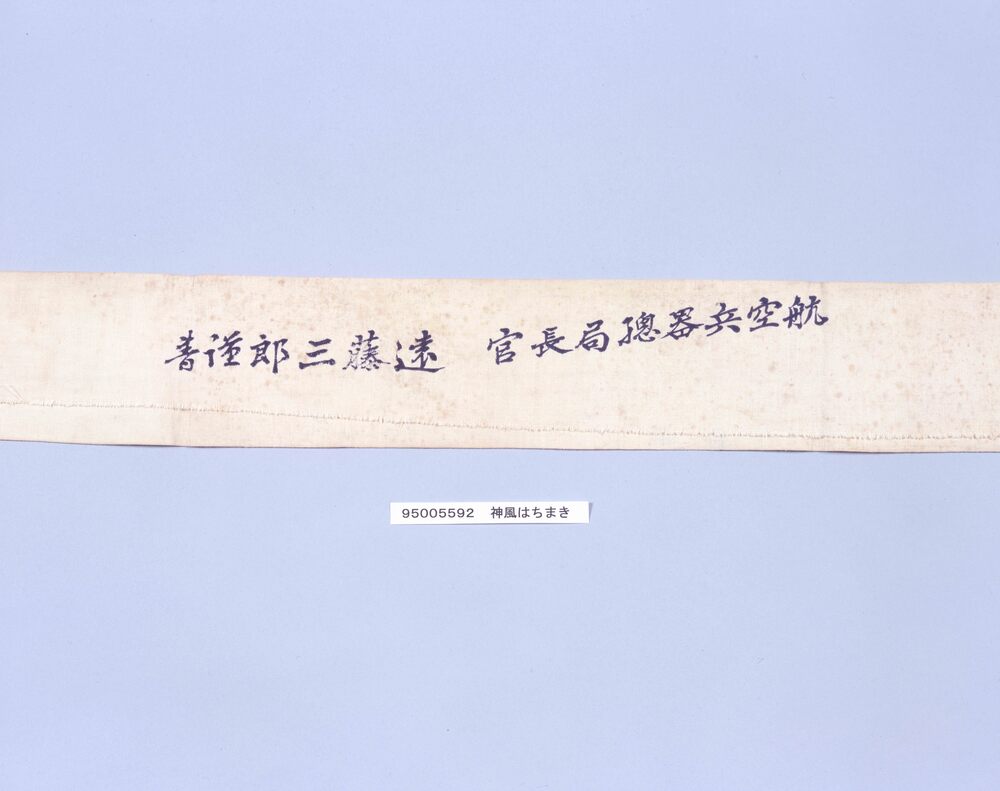 航空兵器總局長官 遠藤三郎謹書
95005592 神風はちまき